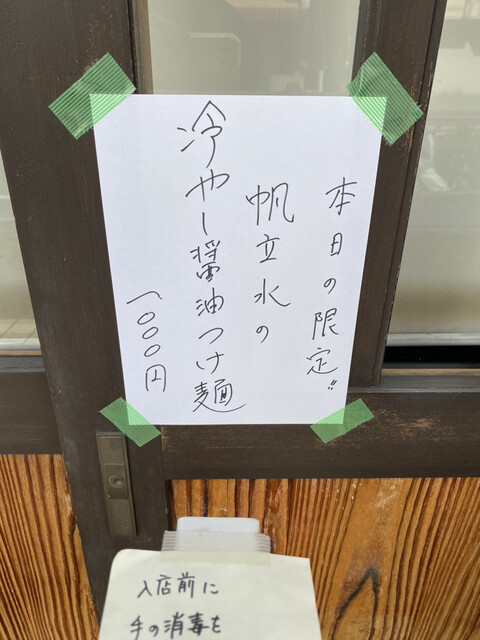 本日の限定!!
帆立水の
冷やし醤油つけ麺
1,000円
入店前に
手の消毒を